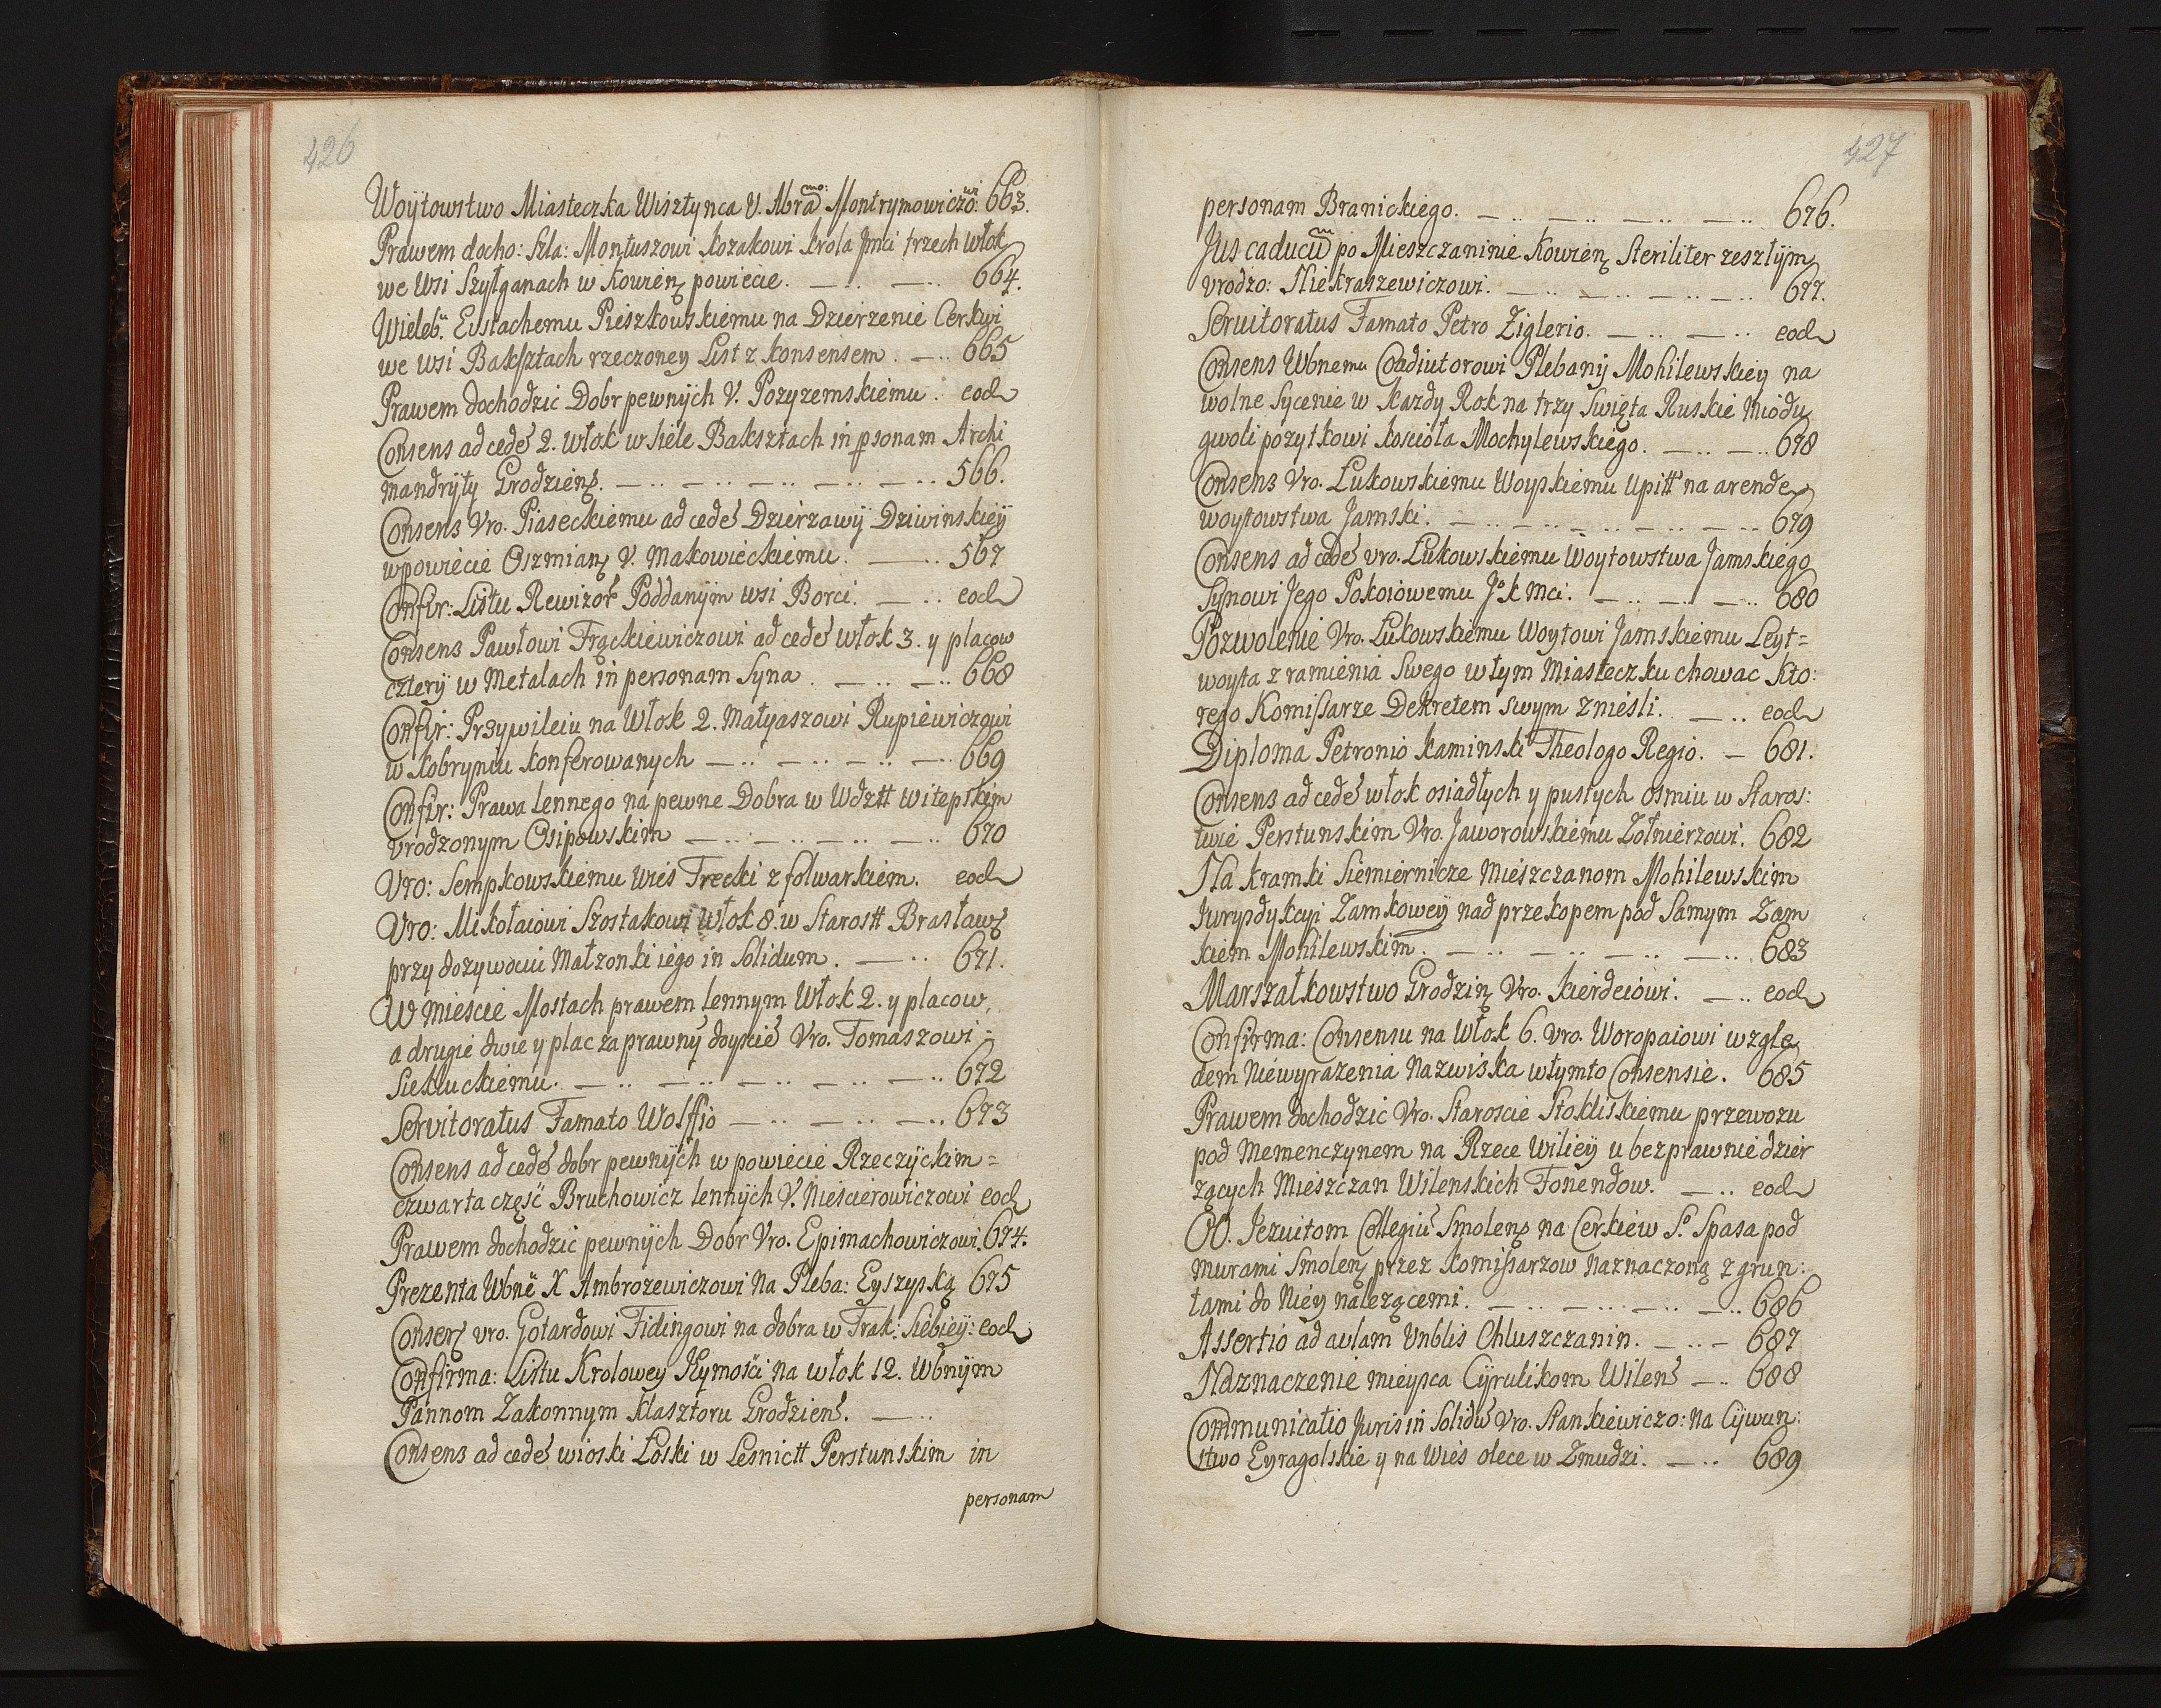 426
Woÿtowstwo Miasteczka Wisztynca V. Abramo: Montrymowiczowi: 663.
Prawem docho: Szla: Montuszowi kozakowi krola Jmci trzech włok
we wsi Szyłganach w Kowień powiecie. — .. — .. 664.
Wieleb: Eustachemu Pieszkowskiemu na Dzierzenie Cerkwi
we wsi Bakſztach rzeczoney List z konsensem. — .. 665
Prawem dochodzic Dobr pewnÿch V. Pozyzemskiemu. eod
Consens ad ced: 2. włok w siele Baksztach in psonam Archi
mandrÿty Grodzień. — .. — .. — .. — .. — .. 566.
Consens Vro. Piaseckiemu ad ced: Dzierzawÿ Dziwinskieÿ
w powiecie Oszmian V. Makowieckiemu. — .. 567
Confir: Listu Rewizor: Poddanÿm wsi Borci. — .. eod
Consens Pawłowi Frąckiewiczowi ad ced: włok 3. y placow
czterÿ w Metalach in personam Syna. — .. — .. 668
Confir: Przywileiu na Włok 2. Matyaszowi Rupiewiczowi
w Kobryniu konferowanych — .. — .. — .. — .. 669
Confir: Prawa lennego na pewne Dobra w Wdztt witepskim
vrodzonym Osipowskim — .. — .. — .. — .. 670
Vro: Sempkowskiemu wies Trecki z folwarkiem. eod
Vro: Mikołaiowi Szostakowi Włok 8. w Starostt Brasław
przy dozywociu Małzonki iego in Solidum. — .. 671.
W Miescie Mostach prawem lennym Włok 2. y placow,
a drugie dwie y plac za prawny doyscie Vro. Tomaszowi =
Siekluckiemu. — .. — .. — .. — .. — .. 672
Servitoratus Famato Wolffio — .. — .. — .. 673
Consens ad ced: dobr pewnÿch w powiecie Rzeczÿckim =
czwarta część Bruchowicz lennÿch V. Niescierowiczowi eod
Prawem dochodzic pewnÿch Dobr Vro. Epimachowiczowi. 674.
Prezenta Wbne X Ambrozewiczowi na Pleba: Eyszyską 675
Consens vro. Gotardowi Fidingowi na dobra w Trak: Siebieÿ: eod
Confirma: Listu Krolowey Jeymości na włok 12. Wbnÿm
Pannom Zakonnym klasztoru Grodzień. — ..
Consens ad ced: wioski Łoski w Lesnictt Perstunskim in
personam
427
personam Branickiego. — .. — .. — .. — .. 676.
Jus caducum po Mieszczaninie Kowień Steriliter zeszłÿm
vrodzo: Niekraszewiczowi. — .. — .. — .. 677.
Seruitoratus Famato Petro Ziglerio. — .. — .. eod
Consens Wbnemu Coadiutorowi Plebanÿ Mohilewskiey na
wolne Sycenie w kazdy Rok na trzy Swięta Ruskie Miodu
gwoli pozytkowi kościoła Mochylewskiego. — .. — .. 678
Consens Vro. Łukowskiemu Woyskiemu Upitt na arende
woytowstwa Jamski. — .. — .. — .. — .. 679
Consens ad ced: vro. Łukowskiemu Woytowstwa Jamskiego
Synowi Jego Pokoiowemu J. k Mci. — .. — .. — .. 680
Pozwolenie Vro. Łukowskiemu Woytowi Jamskiemu Leyt=
woyta z ramienia Swego w tym Miasteczku chowac kto:
rego Komiſſarze Dekretem swym znieśli. — .. eod
Diploma Petronio Kaminski Theologo Regio. — 681.
Consens ad ced: włok osiadłych y pustych osmiu w Staros:
twie Perstunskim Vro. Jaworowskiemu Zołnierzowi. 682
Na kramki Siemiernicze Mieszczanom Mohilewskim
Jurysdykcyi Zamkoweÿ nad przekopem pod Samym Zam
kiem Mohilewskim. — .. — .. — .. — .. 683
Marszałkowstwo Grodziń Vro. Kierdeiowi. — .. eod
Confirma: Consensu na Włok 6. vro. Woropaiowi wzglę
dem Niewyrazenia Nazwiska w tymto Consensie. 685
Prawem dochodzic Vro. Staroscie Stokliskiemu przewozu
pod Memenczynem na Rzece Wilieÿ u bezprawnie dzier
zących Mieszczan Wilenskich Fonendow. — .. eod
OO. Jezuitom Collegiu Smoleń na Cerkiew S: Spasa pod
murami Smoleń przez Komiſſarzow naznaczoną z grun:
tami do Niey nalezącemi. — .. — .. — .. — .. 686
Assertio ad aulam Vnblis Chluszczanin. — .. — 687
Naznaczenie mieysca Cÿrulikom Wilen — .. 688
Communicatio Juris in Solidu Vro. Stankiewiczo: na Cijwun:
stwo Eyragolskie y na Wies olece w Zmudzi. — .. 689